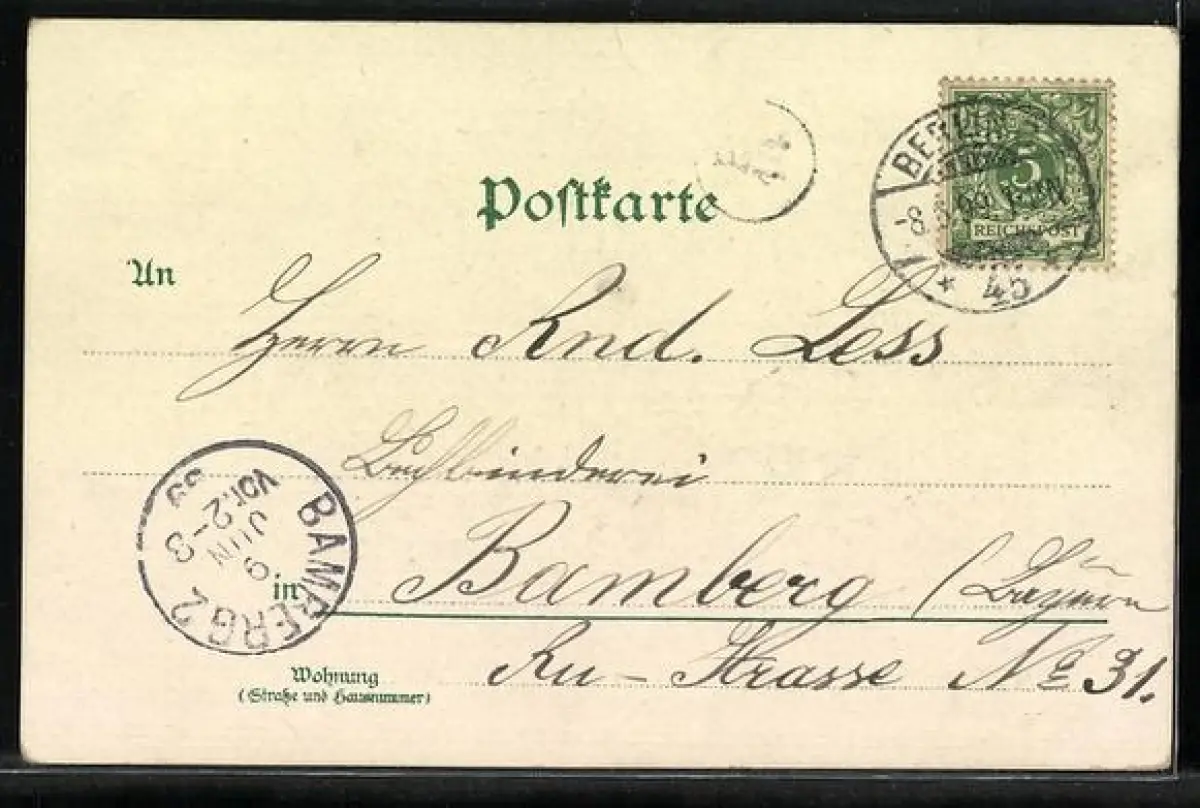 Postkarte
BERLIN
-8
99
45
5
REICHSPOST
An
Herrn And. Less
Buchbinderei
BAMBERG 2
9
JUN
Vor. 2-3
99
in Bamberg (Bayern
Au-Strasse No 31.
Wohnung
(Straße und Hausnummer)